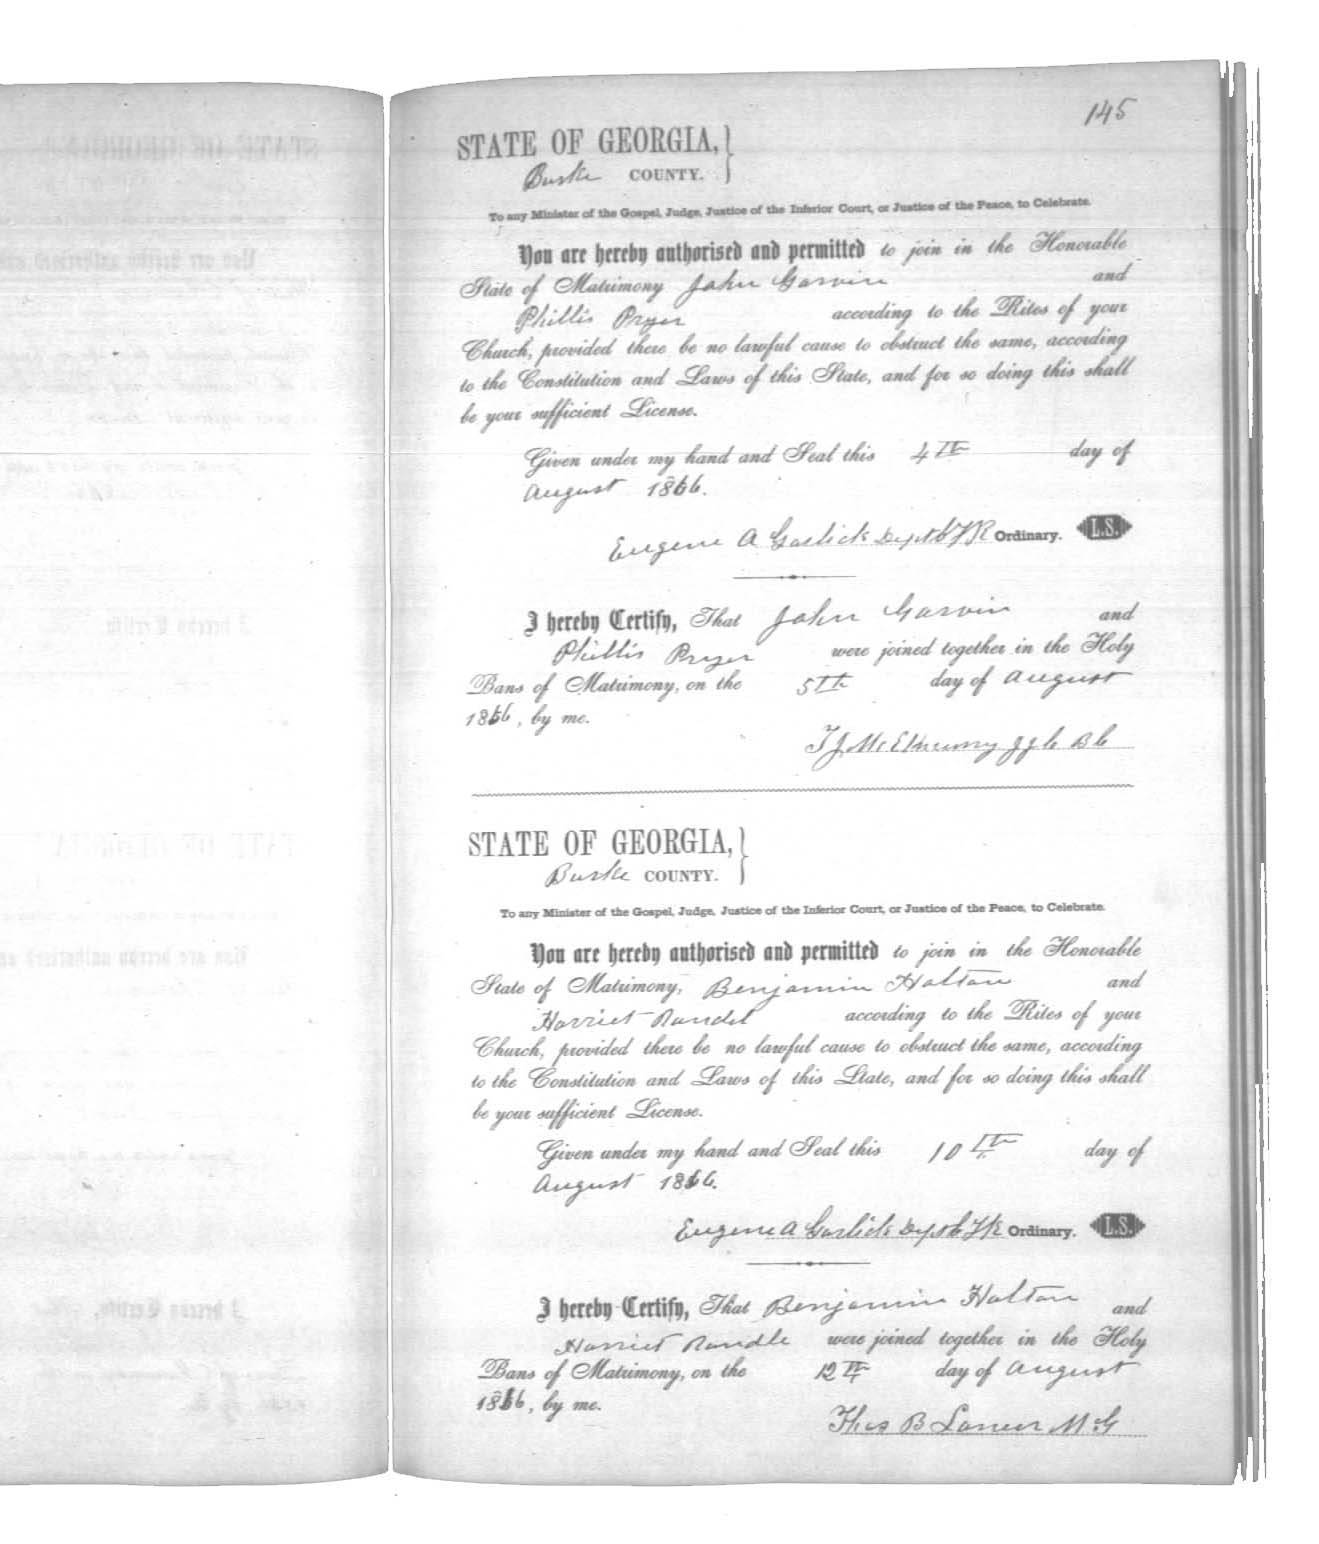 145
STATE OF GEORGIA,
Burke COUNTY.
To any Minister of the Gospel, Judge, Justice of the Inferior Court, or Justice of the Peace, to Celebrate.
You are hereby authorised and permitted to join in the Honorable
State of Matrimony John Garvin and
Phillis Pryer according to the Rites of your
Church, provided there be no lawful cause to obstruct the same, according
to the Constitution and Laws of this State, and for so doing this shall
be your sufficient License.
Given under my hand and Seal this 4th day of
August 1866.
Eugene A Garlick Ordinary. L.S.
I hereby Certify, That John Garvin and
Phillis Pryer were joined together in the Holy
Bans of Matrimony, on the 5th day of August
1866, by me.
T J
STATE OF GEORGIA,
Burke COUNTY.
To any Minister of the Gospel, Judge, Justice of the Inferior Court, or Justice of the Peace, to Celebrate.
You are hereby authorised and permitted to join in the Honorable
State of Matrimony, Benjamin Holton and
Harriet Randel according to the Rites of your
Church, provided there be no lawful cause to obstruct the same, according
to the Constitution and Laws of this State, and for so doing this shall
be your sufficient License.
Given under my hand and Seal this 10th day of
August 1866.
Eugene A Garlick Ordinary. L.S.
I hereby Certify, That Benjamin Holton and
Harriet Randle were joined together in the Holy
Bans of Matrimony, on the 12th day of August
1866, by me.
Thos B Lanier M G